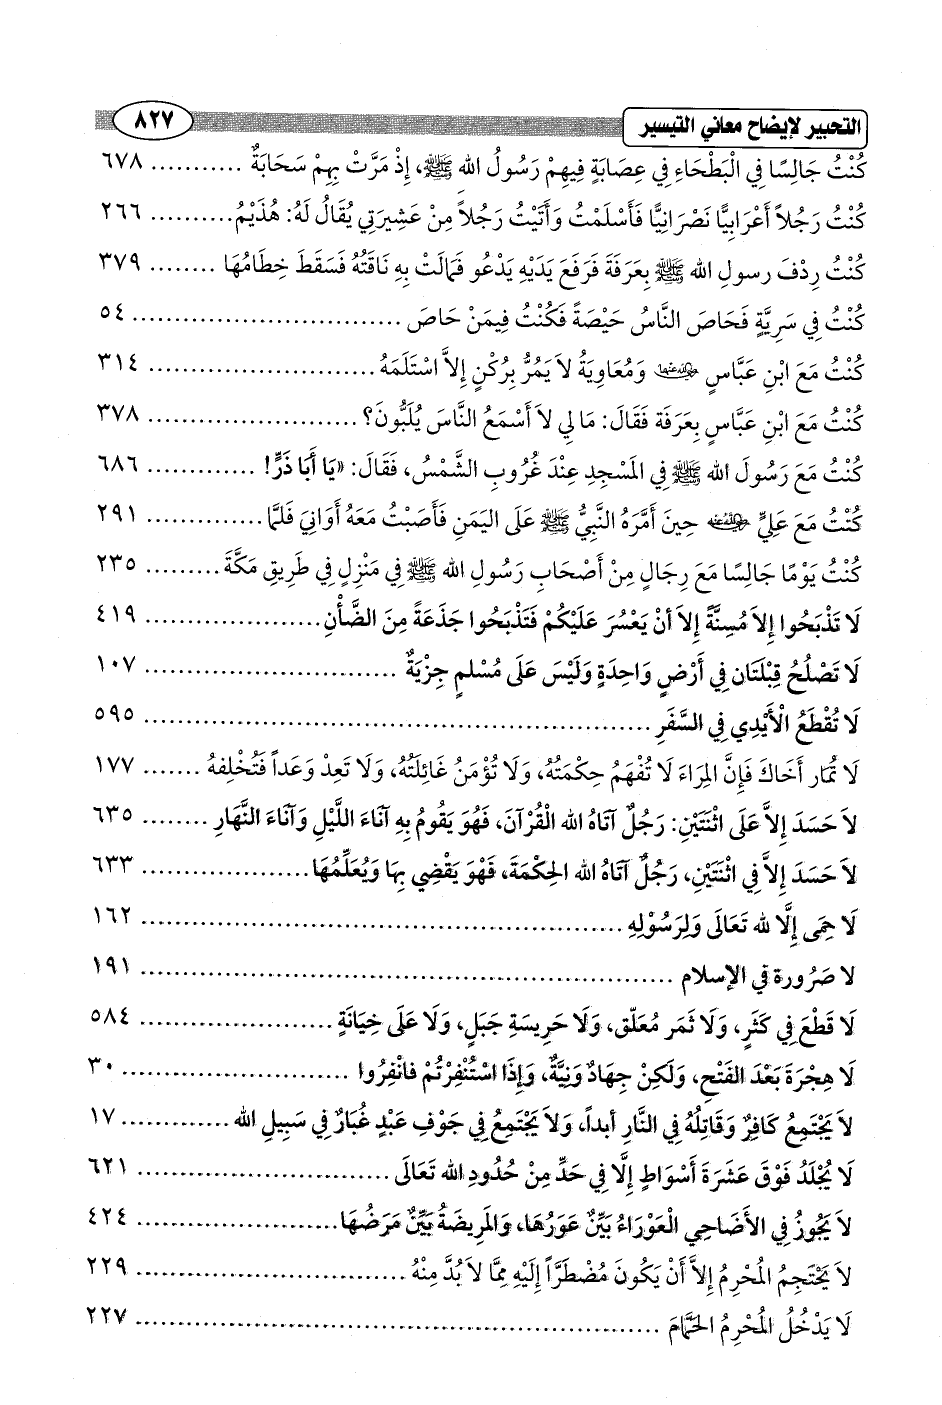 التحبير لإيضاح معاني التيسير ٨٢٧
كُنْتُ جَالِسًا فِي الْبَطْحَاءِ فِي عِصَابَةٍ فِيهِمْ رَسُولُ الله ﷺ، إِذْ مَرَّتْ بِهِمْ سَحَابَةٌ ........... ٦٧٨
كُنْتُ رَجُلاً أَعْرَابِيًّا نَصْرَانِيًّا فَأَسْلَمْتُ وَأَتَيْتُ رَجُلاً مِنْ عَشِيرَتِي يُقَالُ لَهُ: هُذَيْمُ .......... ٢٦٦
كُنْتُ رِدْفَ رسولِ الله ﷺ بِعَرَفَةَ فَرَفَعَ يَدَيْهِ يَدْعُو فَمَالَتْ بِهِ نَاقَتُهُ فَسَقَطَ خِطَامُهَا ........ ٣٧٩
كُنْتُ فِي سَرِيَّةٍ فَحَاصَ النَّاسُ حَيْصَةً فَكُنْتُ فِيمَنْ حَاصَ ................................ ٥٤
كُنْتُ مَعَ ابْنِ عَبَّاسٍ رضي الله عنهما وَمُعَاوِيَةُ لاَ يَمُرُّ بِرُكْنٍ إِلاَّ اسْتَلَمَهُ ........................... ٣١٤
كُنْتُ مَعَ ابْنِ عَبَّاسٍ بِعَرَفَةَ فَقَالَ: مَا لِي لاَ أَسْمَعُ النَّاسَ يُلَبُّونَ؟ .......................... ٣٧٨
كُنْتُ مَعَ رَسُولَ الله ﷺ فِي المَسْجِدِ عِنْدَ غُرُوبِ الشَّمْسُ، فَقَالَ: «يَا أَبَا ذَرٍّ! ............. ٦٨٦
كُنْتُ مَعَ عَلِيٍّ رضي الله عنه حِينَ أَمَّرَهُ النَّبِيُّ ﷺ عَلَى اليَمَنِ فَأَصَبْتُ مَعَهُ أَوَانِيَ فَلَمَّا .............. ٢٩١
كُنْتُ يَوْمًا جَالِسًا مَعَ رِجَالٍ مِنْ أَصْحَابِ رَسُولِ الله ﷺ فِي مَنْزِلٍ فِي طَرِيقِ مَكَّةَ ......... ٢٣٥
لَا تَذْبَحُوا إِلاَ مُسِنَّةً إِلاَ أنْ يَعْسُرَ عَلَيْكُمْ فَتَذْبَحُوا جَذَعَةً مِنَ الضَّأْنِ ..................... ٤١٩
لَا تَصْلُحُ قِبْلَتَان فِي أَرْضٍ وَاحِدَةٍ وَلَيْسَ عَلَى مُسْلمٍ جِزْيَةٌ .............................. ١٠٧
لَا تُقْطَعُ الْأَيْدِي فِي السَّفَرِ ............................................................ ٥٩٥
لَا تُمَار أَخَاكَ فَإِنَّ المِرَاءَ لَا تُفْهَمُ حِكْمَتُهُ، وَلَا تُؤْمَنُ غَائِلَتُهُ، وَلَا تَعِدْ وَعَداً فَتُخْلِفهُ ....... ١٧٧
لاَ حَسَدَ إِلاَّ عَلَى اثْنَتَيْنِ: رَجُلٌ آتَاهُ الله الْقُرْآنَ، فَهُوَ يَقُومُ بِهِ آنَاءَ اللَّيْلِ وَآنَاءَ النَّهَارِ ........ ٦٣٥
لاَ حَسَدَ إِلاَّ فِي اثْنَتَيْنِ، رَجُلٌ آتَاهُ الله الحِكْمَةَ، فَهْوَ يَقْضِي بِهَا وَيُعَلِّمُهَا .................... ٦٣٣
لَا حِمَى إِلَّا لله تَعَالَى وَلِرَسُوْلِهِ ......................................................... ١٦٢
لا صَرُورة في الإسلام ............................................................... ١٩١
لَا قَطْعَ فِي كَثَرٍ، وَلَا ثَمَر مُعَلَّق، وَلَا حَرِيسَةِ جَبَلٍ، وَلَا عَلَى خِيَانَةٍ ....................... ٥٨٤
لَا هِجْرَةَ بَعْدَ الفَتْحِ، وَلَكِنْ جِهَادٌ وَنِيَّةٌ، وَإِذَا اسْتُنْفِرْتُمْ فانْفِرُوا ........................... ٣٠
لاَ يَجْتَمِعُ كَافِرٌ وَقَاتِلُهُ فِي النَّار أبداً، وَلاَ يَجْتَمِعُ فِي جَوْفِ عَبْدٍ غُبَارٌ فِي سَبِيلِ الله ............. ١٧
لَا يُجْلَدُ فَوْقَ عَشَرَةَ أَسْوَاطٍ إِلَّا فِي حَدٍّ مِنْ حُدُودِ الله تَعَالَى ................................ ٦٢١
لاَ يَجُوزُ فِي الأَضَاحِي الْعَوْرَاءُ بَيِّنٌ عَوَرُهَا، وَالمَرِيضَةُ بَيِّنٌ مَرَضُهَا ........................ ٤٢٤
لاَ يَحْتَجِمُ المُحْرِمُ إِلاَّ أَنْ يَكُونَ مُضْطَرًّا إِلَيْهِ مِمَّا لاَ بُدَّ مِنْهُ ................................. ٢٢٩
لَا يَدْخُلُ المُحْرِمُ الحَمَّامَ ............................................................... ٢٢٧